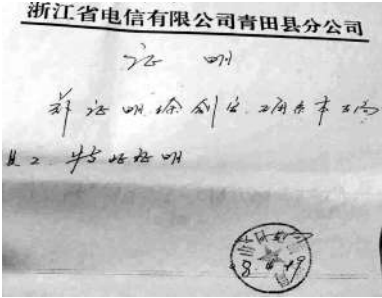 浙江省电信有限公司青田县分公司
证 明
兹证明徐剑 同志系本公司
职工 特此证明
8